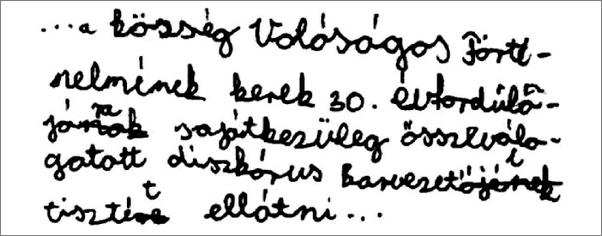 ...a község Volóságos Törtt-
nelmének kerek 30. évfordúlá-
jára sajátkezüleg összeválo-
gatott diszkórus karvezetői
tisztét ellátni...